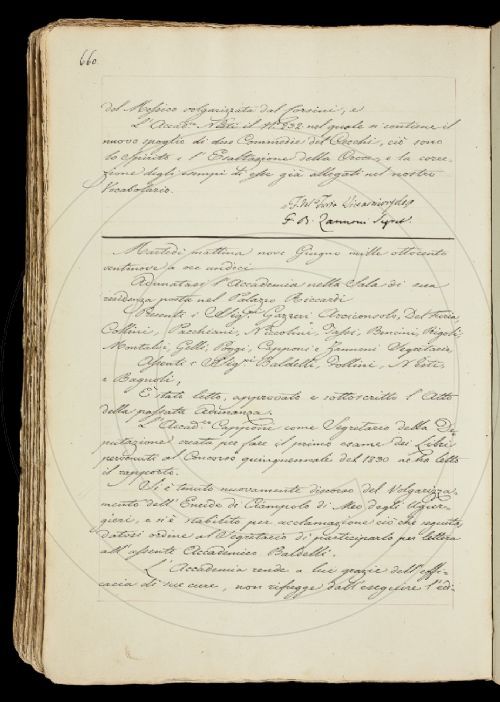 660
del Messico volgarizzata dal Corsini, e
L'Accad.co Nesti il N. 232 nel quale si contiene il
nuovo spoglio di due Commedie del Cecchi, ciò sono
lo Spirito e l'Esaltazione della Croce, e la corre-
zione degli esempi di esse già allegati nel nostro
Vocabolario.
F. B. Zannoni Segret.
Martedì mattina nove Giugno mille ottocento
ventinove a ore undici
Adunatasi l'Accademia nella Sala di sua
residenza posta nel Palazzo Riccardi
Presenti i Sig.ri Gazzeri Arciconsolo, Del Furia
Collini, Pacchiani, Niccolini, Bencini, Rigoli
Montalvi, Gelli, Poggi, Capponi e Zannoni Segretario
Assenti i Sig.ri Baldelli, Follini, Nesti,
e Bagnoli,
È stato letto, approvato e sottoscritto l'Atto
della passata Adunanza.
L'Accad.co Capponi come Segretario della De-
putazione creata per fare il primo esame dei Libri
pervenuti al Concorso quinquennale del 1830 ne ha letto
il rapporto.
Si è tenuto nuovamente discorso del Volgarizza-
mento dell'Eneide di Ciampolo di Meo degli Ugur-
gieri, e si è stabilito per acclamazione ciò che seguita,
datosi ordine al Segretario di parteciparlo per lettera
all'assente Accademico Baldelli.
L'Accademia rende a lui grazie dell'effi-
cacia di sue cure, non rifugge dall'eseguire l'edi-